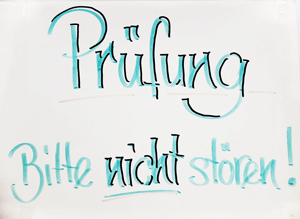 Prüfung
Bitte nicht stören!